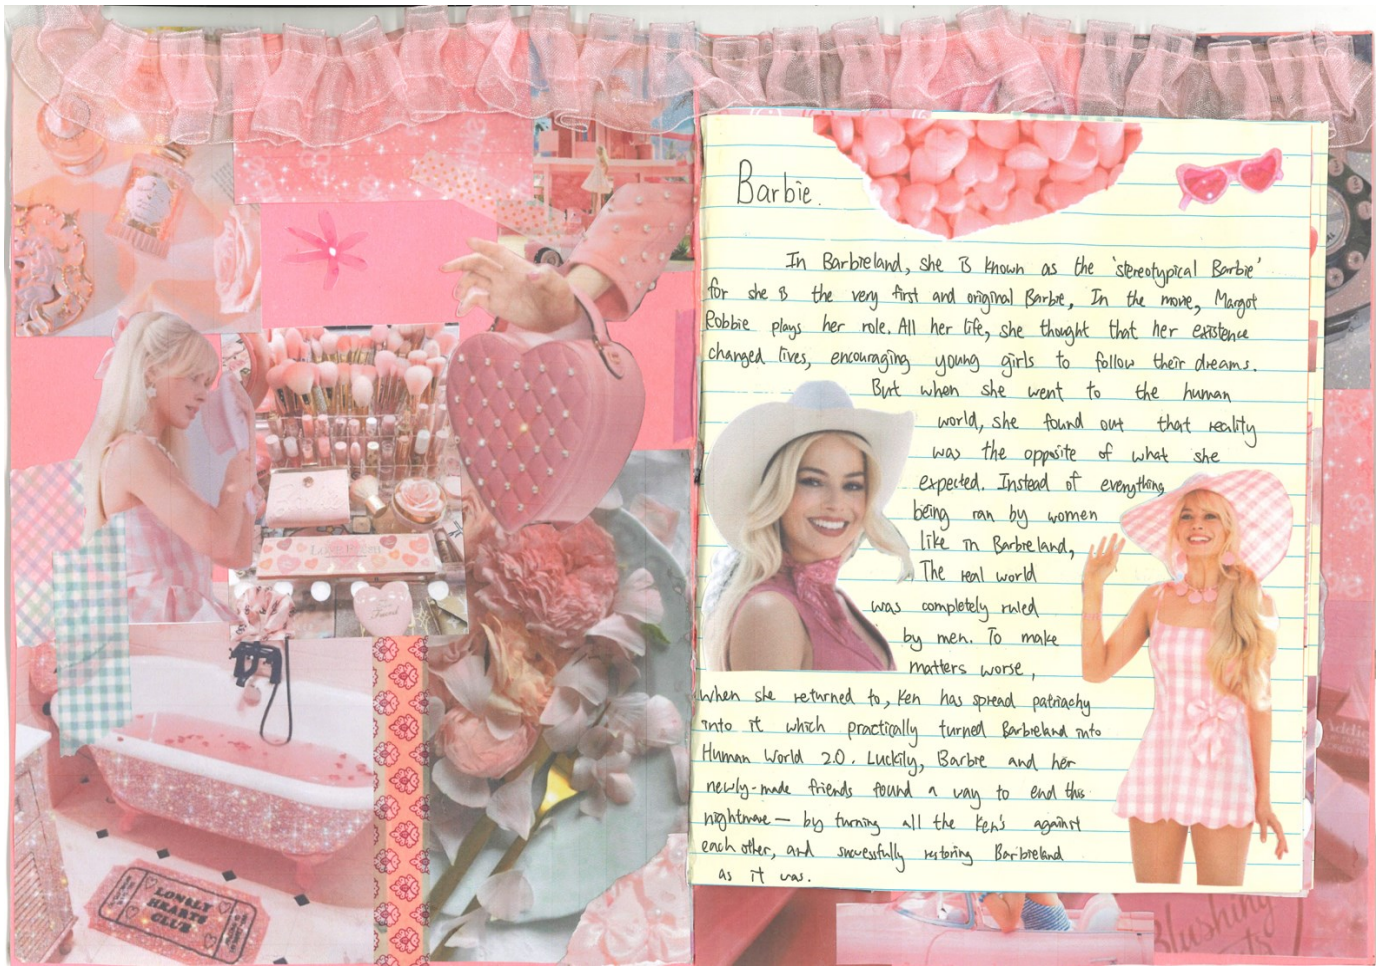 Barbie.
In Barbieland, she is known as the 'stereotypical Barbie'
for she is the very first and original Barbie, In the movie, Margot
Robbie plays her role. All her life, she thought that her existence
changed lives, encouraging young girls to follow their dreams.
But when she went to the human
world, she found out that reality
was the opposite of what she
expected. Instead of everything
being ran by women
like in Barbieland,
The real world
was completely ruled
by men. To make
matters worse,
when she returned to, Ken has spread patriachy
into it which practically turned Barbieland into
Human World 2.0. Luckily, Barbie and her
newly-made friends found a way to end this
nightmare — by turning all the Ken's against
each other, and successfully restoring Barbieland
as it was.
LONELY
HEARTS
CLUB
Blushing